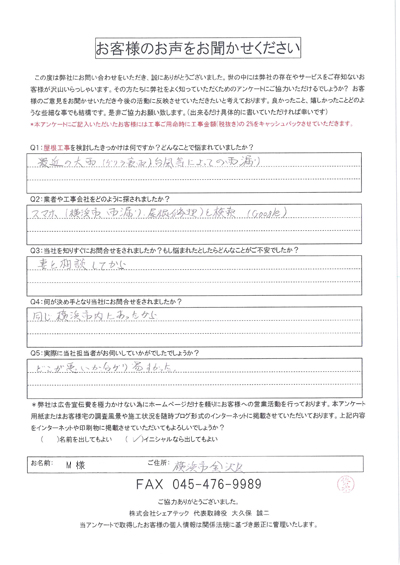 お客様のお声をお聞かせください
この度は弊社にお問い合わせをいただき、誠にありがとうございました。世の中には弊社の存在やサービスをご存知ないお
客様が沢山いらっしゃいます。その方たちに弊社をよく知っていただくためのアンケートにご協力いただけるでしょうか? お客
様のご意見をお聞かせいただき今後の活動に反映させていただきたいと考えております。良かったこと、嬉しかったことどのよ
うな些細な事でも結構です。是非ご協力お願い致します。(出来るだけ具体的に書いていただければ幸いです)
*本アンケートにご記入いただいたお客様には工事ご用命時に工事金額(税抜き)の2%をキャッシュバックさせていただきます。
Q1:屋根工事を検討したきっかけは何ですか?どんなことで悩まれていましたか?
最近の大雨(ゲリラ豪雨)台風等によっての雨漏り
Q2:業者や工事会社をどのように探されましたか?
スマホ(横浜市 雨漏り 屋根修理)と検索 (Google)
Q3:当社を知りすぐにお問合せをされましたか?もし悩まれたとしたらどんなことがご不安でしたか?
妻と相談してから
Q4:何が決め手となり当社にお問合せをされましたか?
同じ横浜市内にあったから
Q5:実際に当社担当者がお伺いしていかがでしたでしょうか?
どこが悪いか分かりました。
*弊社は広告宣伝費を極力かけない為にホームページだけを頼りにお客様への営業活動を行っております。本アンケート
用紙またはお客様宅の調査風景や施工状況を随時ブログ形式のインターネットに掲載させていただいております。上記内容
をインターネットや印刷物に掲載させていただいてもよろしいでしょうか?
( )名前を出してもよい (✓)イニシャルなら出してもよい
お名前: M 様 ご住所: 横浜市金沢区
FAX 045-476-9989
ご協力ありがとうございました。
株式会社シェアテック 代表取締役 大久保 誠二
当アンケートで取得したお客様の個人情報は関係法規に基づき厳正に管理いたします。